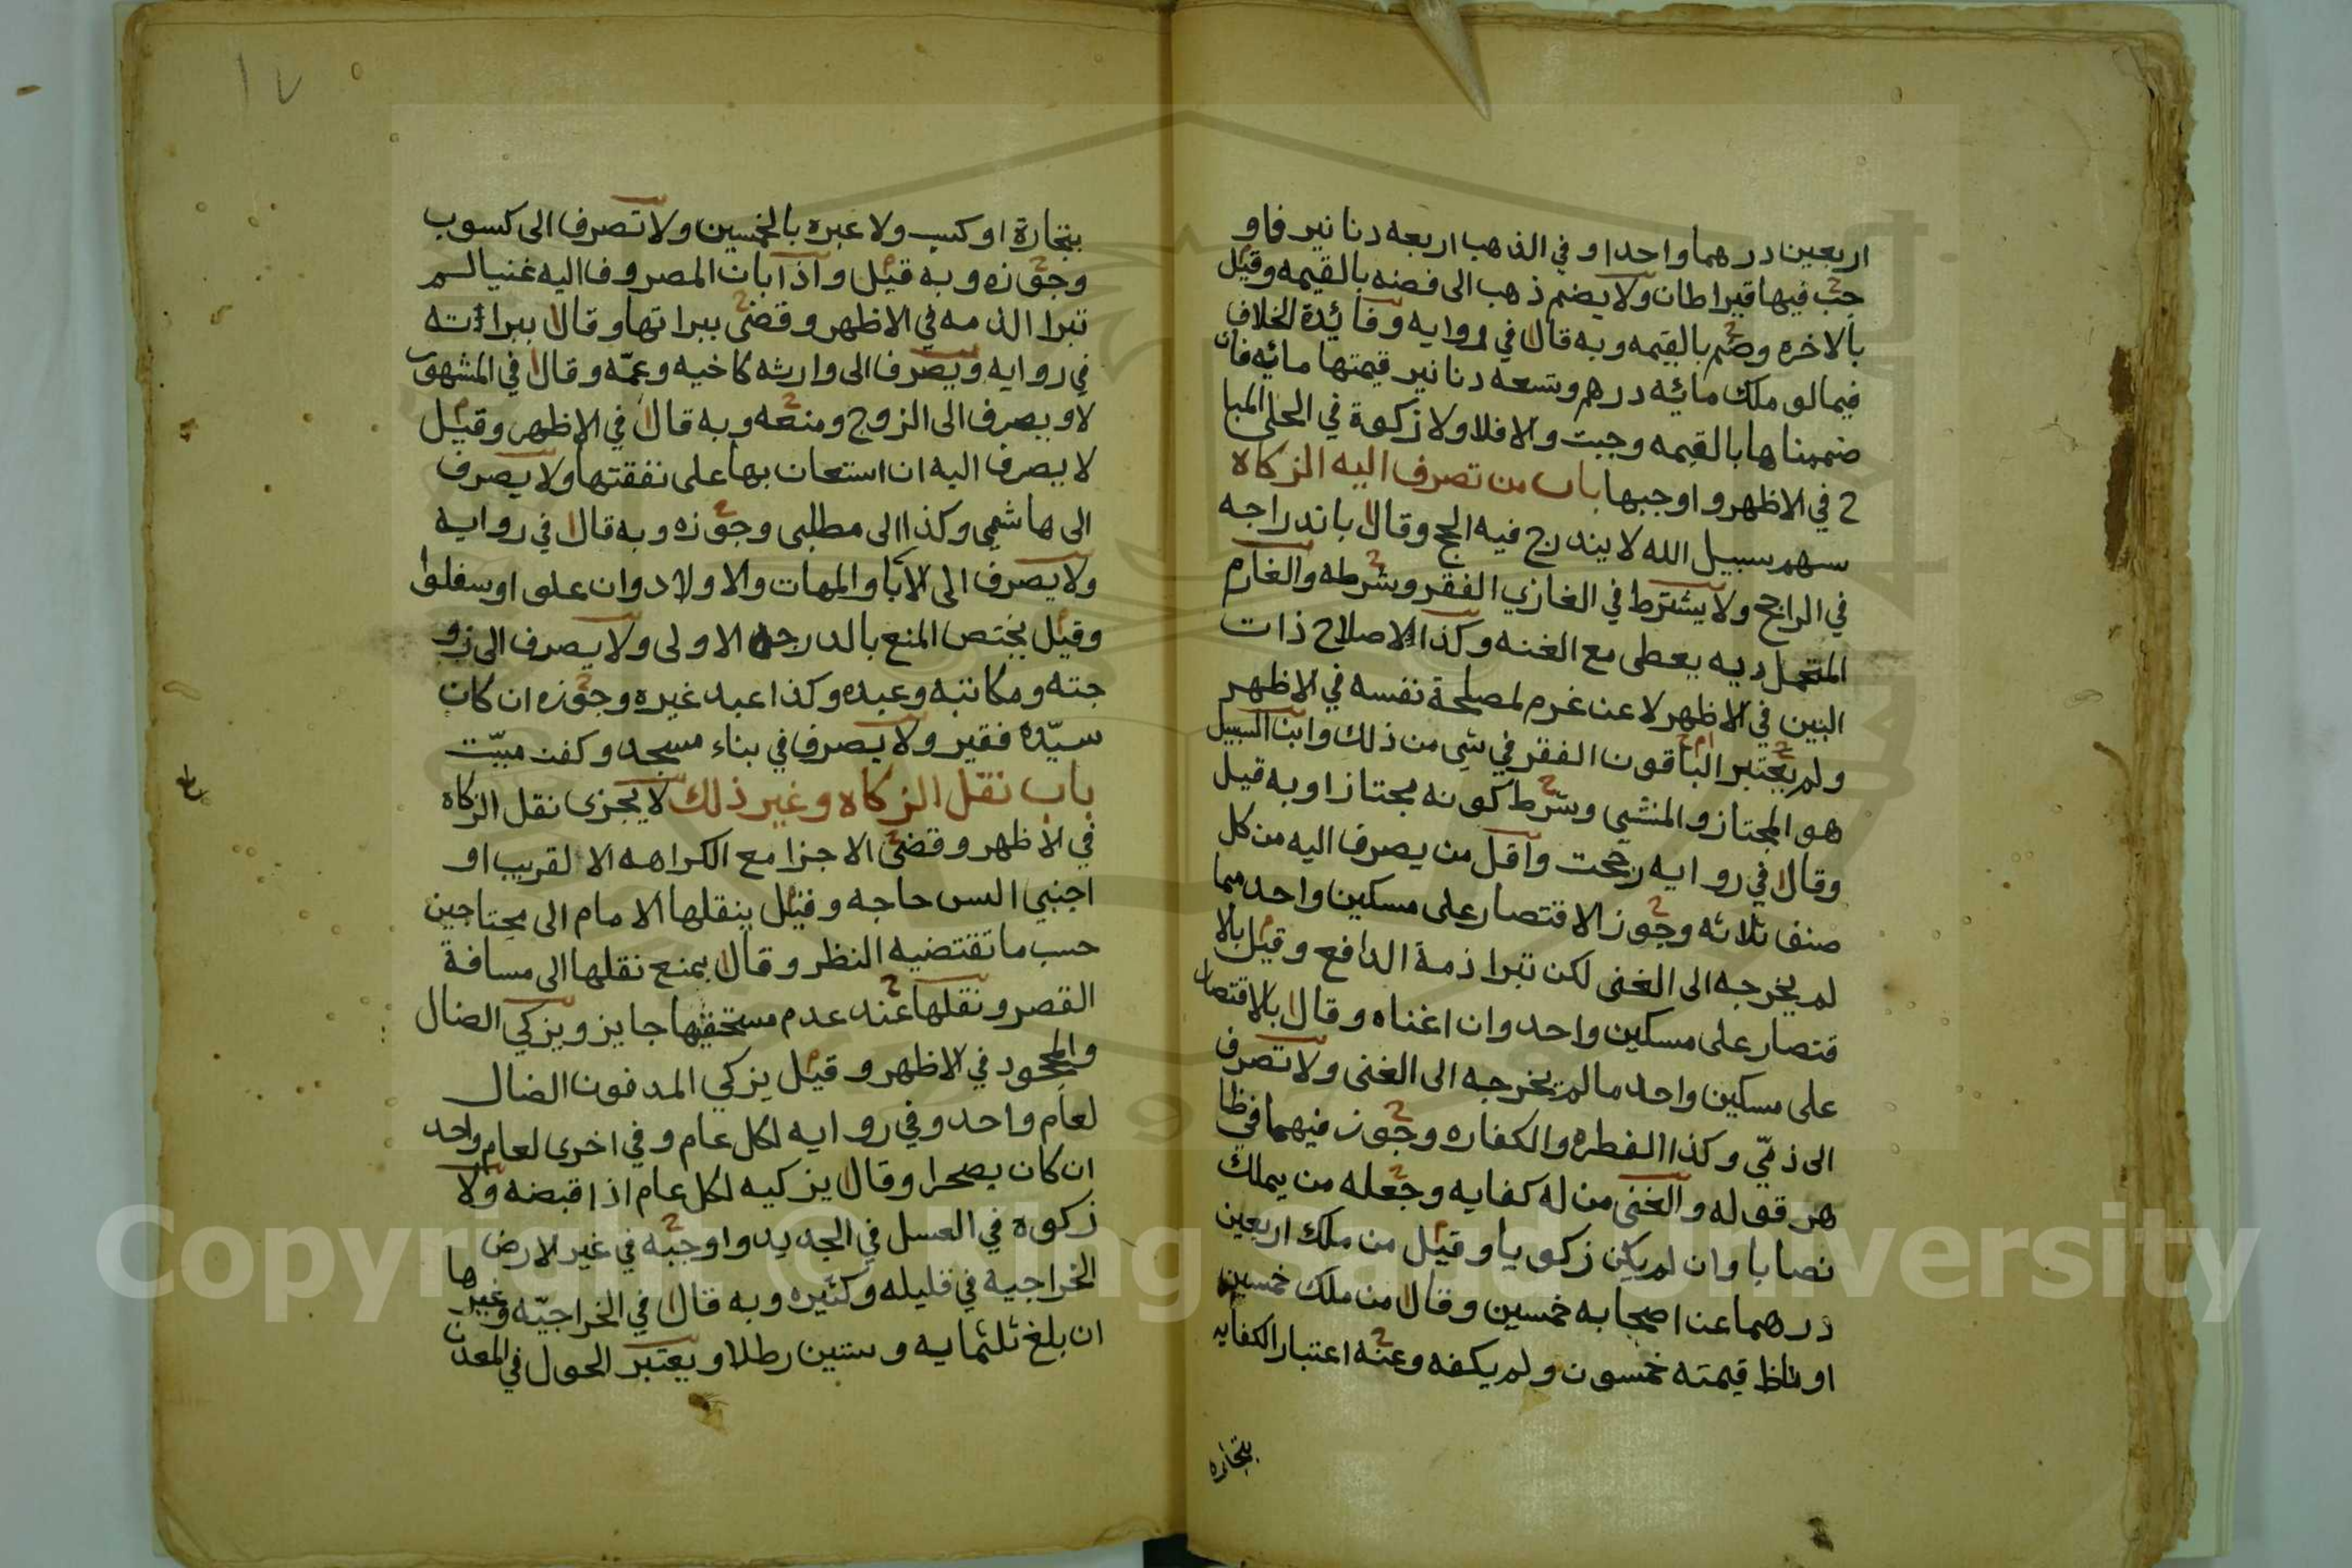 اربعين درهما واحدا و في الذهب اربعه دنانير فاو
جب فيها قيراطان ولا يضم ذهب الى فضه بالقيمه وقيل
بالاخره وضم بالقيمه وبه قال في روايه وفائدة الخلاف
فيما لو ملك مائيه درهم وتسعه دنانير قيمتها مائيه فان
ضممناها بالقيمه وجبت والا فلا ولا زكوة في الحلي المبا
ح في الاظهر واوجبها باب من تصرف اليه الزكاة
سهم سبيل الله لا يندرج فيه الحج وقال باندراجه
في الراجح ولا يشترط في الغازي الفقر وشرطه والغارم
المتحمل ديه يعطى مع الغنه وكذا لاصلاح ذات
البين في الاظهر لا عن غرم لمصلحة نفسه في الاظهر
ولم يعتبر الباقون الفقر في شي من ذلك وابن السبيل
هو المجتاز والمنشي وشرط كونه مجتازا وبه قيل
وقال في روايه رجحت واقل من يصرف اليه من كل
صنف ثلاثه وجوز الاقتصار على مسكين واحد مما
لم يخرجه الى الغنى لكن تبرا ذمة الدافع وقيل بالا
قتصار على مسكين واحد وان اغناه وقال بالاقتصار
على مسكين واحد ما لم يخرجه الى الغنى ولا تصرف
الى ذمّي وكذا الفطره والكفاره وجوز فيهما في ظا
هر قوله والغنى من له كفايه وجعله من يملك
نصابا وان لم يكن زكويا وقيل من ملك اربعين
درهما عن اصحابه خمسين وقال من ملك خمسين
او قيمته خمسون ولم يكفه وعنه اعتبار الكفايه
بتجاره
١٧
بتجارة او كسب ولا عبره بالخمسين ولا تصرف الى كسوب
وجوزه وبه قيل واذا بان المصروف اليه غنيا لم
تبرا الذمه في الاظهر وقضى ببراتها وقال ببراءته
في روايه ويصرف الى وارثه كاخيه وعمّه وقال في المشهور
لا ويصرف الى الزوج ومنعه وبه قال في الاظهر وقيل
لا يصرف اليه ان استعان بها على نفقتها ولا يصرف
الى هاشمي وكذا الى مطلبي وجوزه وبه قال في روايه
ولا يصرف الى الآبا والمهات والاولاد وان علو او سفلوا
وقيل يختص المنع بالدرجه الاولى ولا يصرف الى زو
جته ومكاتبه وعبده وكذا عبد غيره وجوزه ان كان
سيّده فقير ولا يصرف في بناء مسجد وكفن ميّت
باب نقل الزكاه وغير ذلك لا يجزى نقل الزكاه
في الاظهر وقضى الاجزا مع الكراهه الا لقريب او
اجنبي السن حاجه وقيل ينقلها الامام الى محتاجين
حسب ما تقتضيه النظر وقال يمنع نقلها الى مسافة
القصر ونقلها عند عدم مستحقيها جايز ويزكي الضال
والمجحود في الاظهر وقيل يزكي المدفون الضال
لعام واحد وفي روايه لكل عام وفي اخرى لعام واحد
ان كان بصحرا وقال يزكيه لكل عام اذا قبضه ولا
زكوة في العسل في الجديد واوجبه في غير الارض
الخراجية في قليله وكثيره وبه قال في الخراجيّه وغيرها
ان بلغ ثلثمايه وستين رطلا ويعتبر الحول في المعدن
Copyright © King Saud University